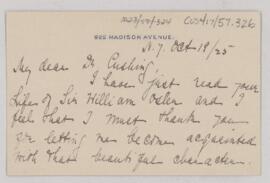 CUS417/57.326
MADISON AVENUE.
N.Y. Oct 19/25
My dear Dr. Cushing
I have just read your
Life of Sir William Osler and I
feel that I must thank you
for letting me become acquainted
with that beautiful character.